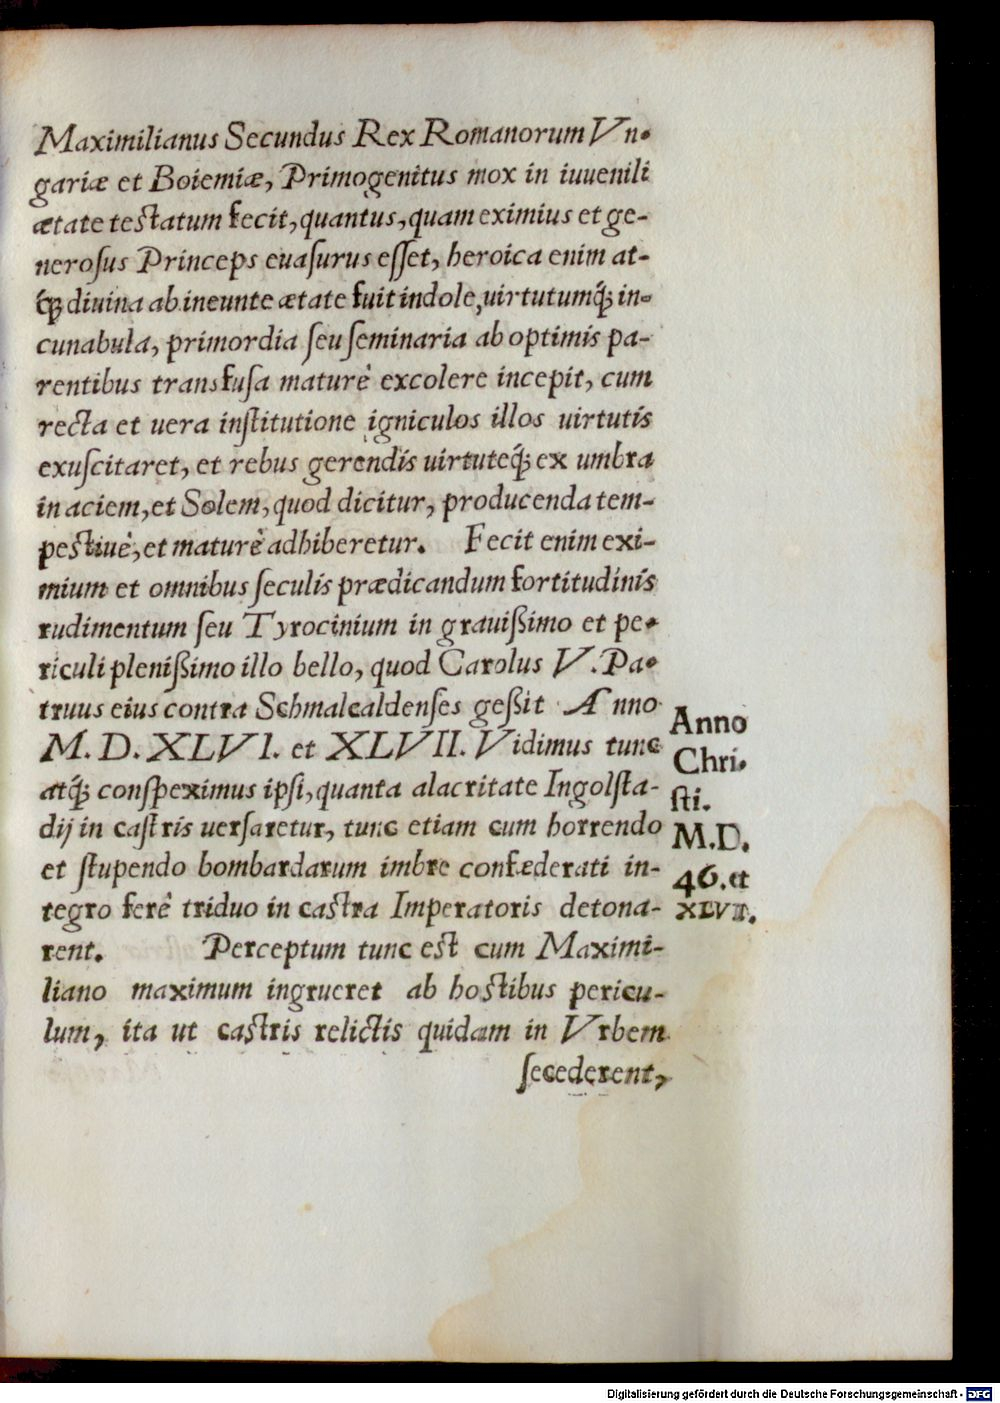 Maximilianus Secundus Rex Romanorum Vn-
gariæ et Boiemiæ, Primogenitus mox in iuuenili
ætate testatum fecit, quantus, quam eximius et ge-
nerosus Princeps euasurus esset, heroica enim at-
q́; diuina ab ineunte ætate fuit indole, uirtutumq́; in-
cunabula, primordia seu seminaria ab optimis pa-
rentibus transfusa maturè excolere incepit, cum
recta et uera institutione igniculos illos uirtutis
exuscitaret, et rebus gerendis uirtuteq́; ex umbra
in aciem, et Solem, quod dicitur, producenda tem-
pestiuè, et maturè adhiberetur. Fecit enim exi-
mium et omnibus seculis prædicandum fortitudinis
rudimentum seu Tyrocinium in grauißimo et pe-
riculi plenißimo illo bello, quod Carolus V. Pa-
truus eius contra Schmalcaldenses geßit Anno
M. D. XLVI. et XLVII. Vidimus tunc
atq́; conspeximus ipsi, quanta alacritate Ingolsta-
dij in castris uersaretur, tunc etiam cum horrendo
et stupendo bombardarum imbre confæderati in-
tegro ferè triduo in castra Imperatoris detona-
rent. Perceptum tunc est cum Maximi-
liano maximum ingrueret ab hostibus pericu-
lum, ita ut castris relictis quidam in Vrbem
secederent,
Anno
Chri-
sti.
M.D.
46. et
XLVII.
Digitalisierung gefördert durch die Deutsche Forschungsgemeinschaft - DFG